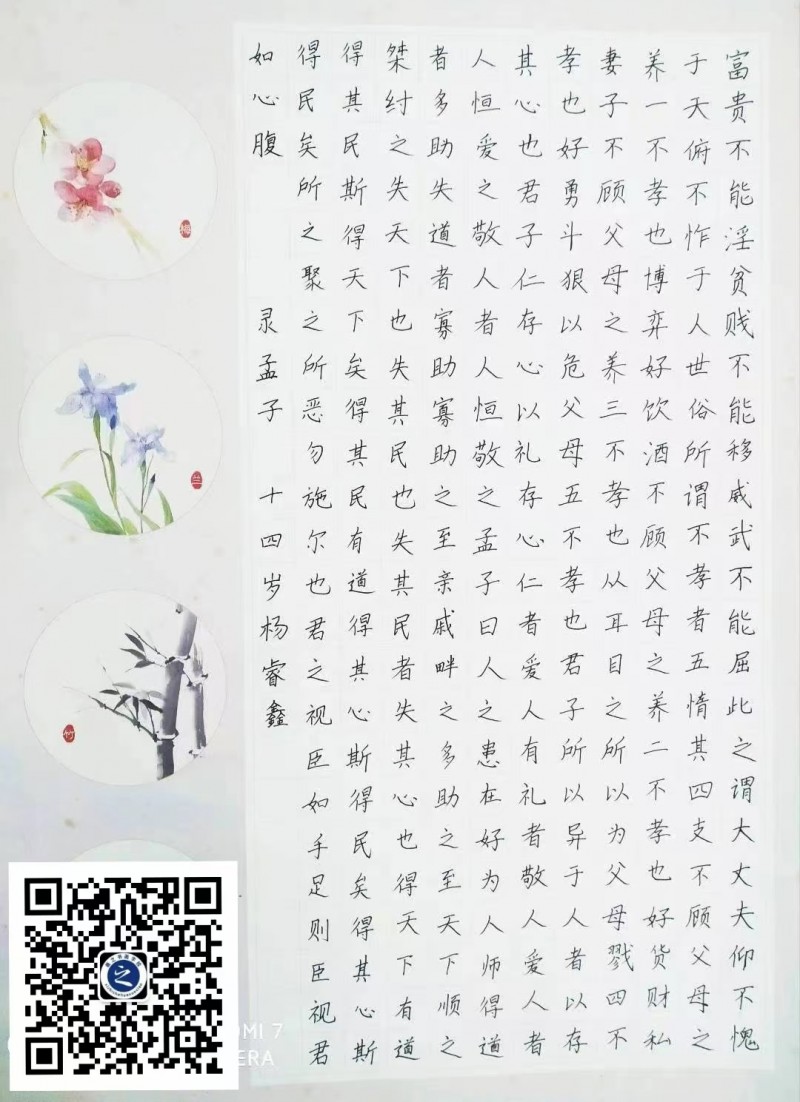 富贵不能淫贫贱不能移威武不能屈此之谓大丈夫仰不愧
于天俯不怍于人世俗所谓不孝者五惰其四支不顾父母之
养一不孝也博弈好饮酒不顾父母之养二不孝也好货财私
妻子不顾父母之养三不孝也从耳目之所以为父母戮四不
孝也好勇斗狠以危父母五不孝也君子所以异于人者以存
其心也君子仁存心以礼存心仁者爱人有礼者敬人爱人者
人恒爱之敬人者人恒敬之孟子曰人之患在好为人师得道
者多助失道者寡助寡助之至亲戚畔之多助之至天下顺之
桀纣之失天下也失其民也失其民者失其心也得天下有道
得其民斯得天下矣得其民有道得其心斯得民矣得其心斯
得民矣所之聚之所恶勿施尔也君之视臣如手足则臣视君
如心腹 录孟子 十四岁杨睿鑫
梅
兰
竹
之
OMI 7
ERA